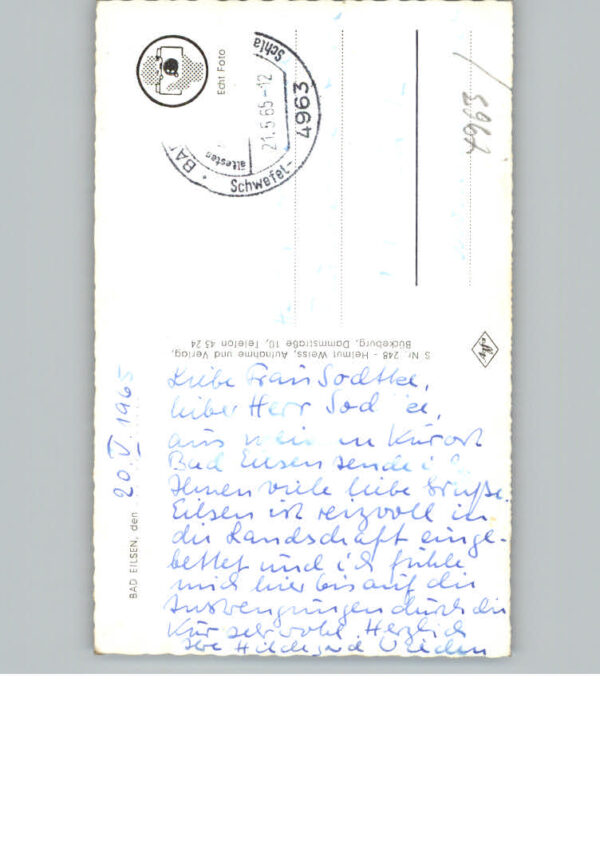 Echt Foto
Schla
21.5.65-12
4963
Schwefel-
ältesten
BA
4963
S Nr. 248 - Helmut Weiss, Aufnahme und Verlag,
Bückeburg, Dammstraße 10, Telefon 43 24
BAD EILSEN, den 20. V. 1965
Liebe Frau Sodtke,
lieber Herr Sod e,
aus in Kurort
Bad Eilsen sende i
Ihnen viele liebe Grüße.
Eilsen ist reizvoll in
die Landschaft einge-
bettet und ich fühle
mich hier bis auf die
Anstrengungen durch die
Kur sehr wohl. Herzlich
Ihre Hildegard